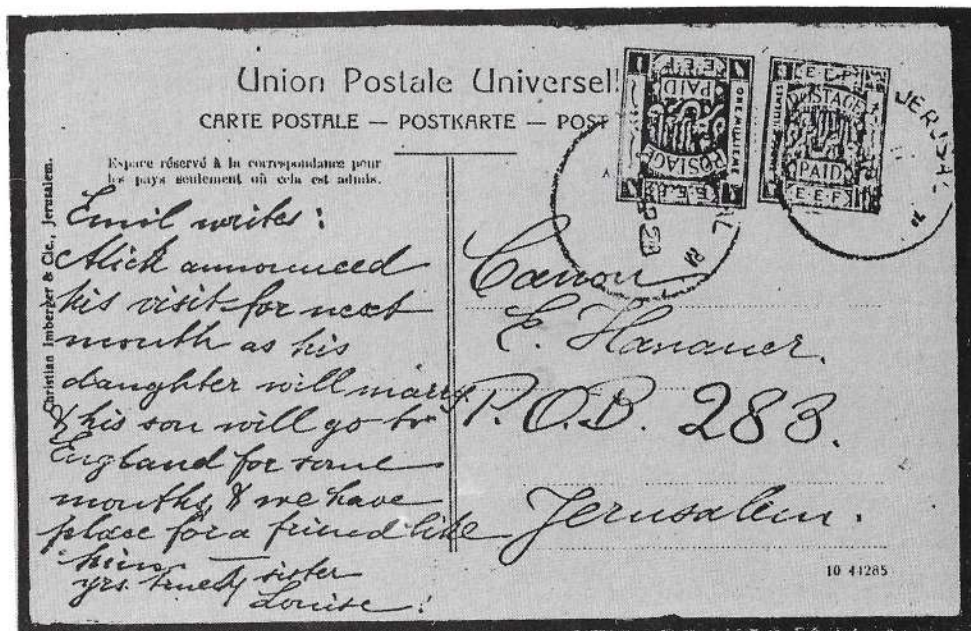 Union Postale Universell
CARTE POSTALE — POSTKARTE — POST
Espace réservé à la correspondance pour
les pays seulement où cela est admis.
Christian Imberger & Cie., Jerusalem.
Emil writes:
Alick announced
his visit for next
month as his
daughter will marry
& his son will go to
England for some
months, & we have
place for a friend like
him —
yrs. truely sister
Louise!
E.E.F.
POSTAGE
PAID
E.E.F.
ONE MILLIEME
E.E.F.
POSTAGE
PAID
E.E.F.
JERUSAL
Canon
E. Hanauer.
P.O.B. 283.
Jerusalem.
10 41285